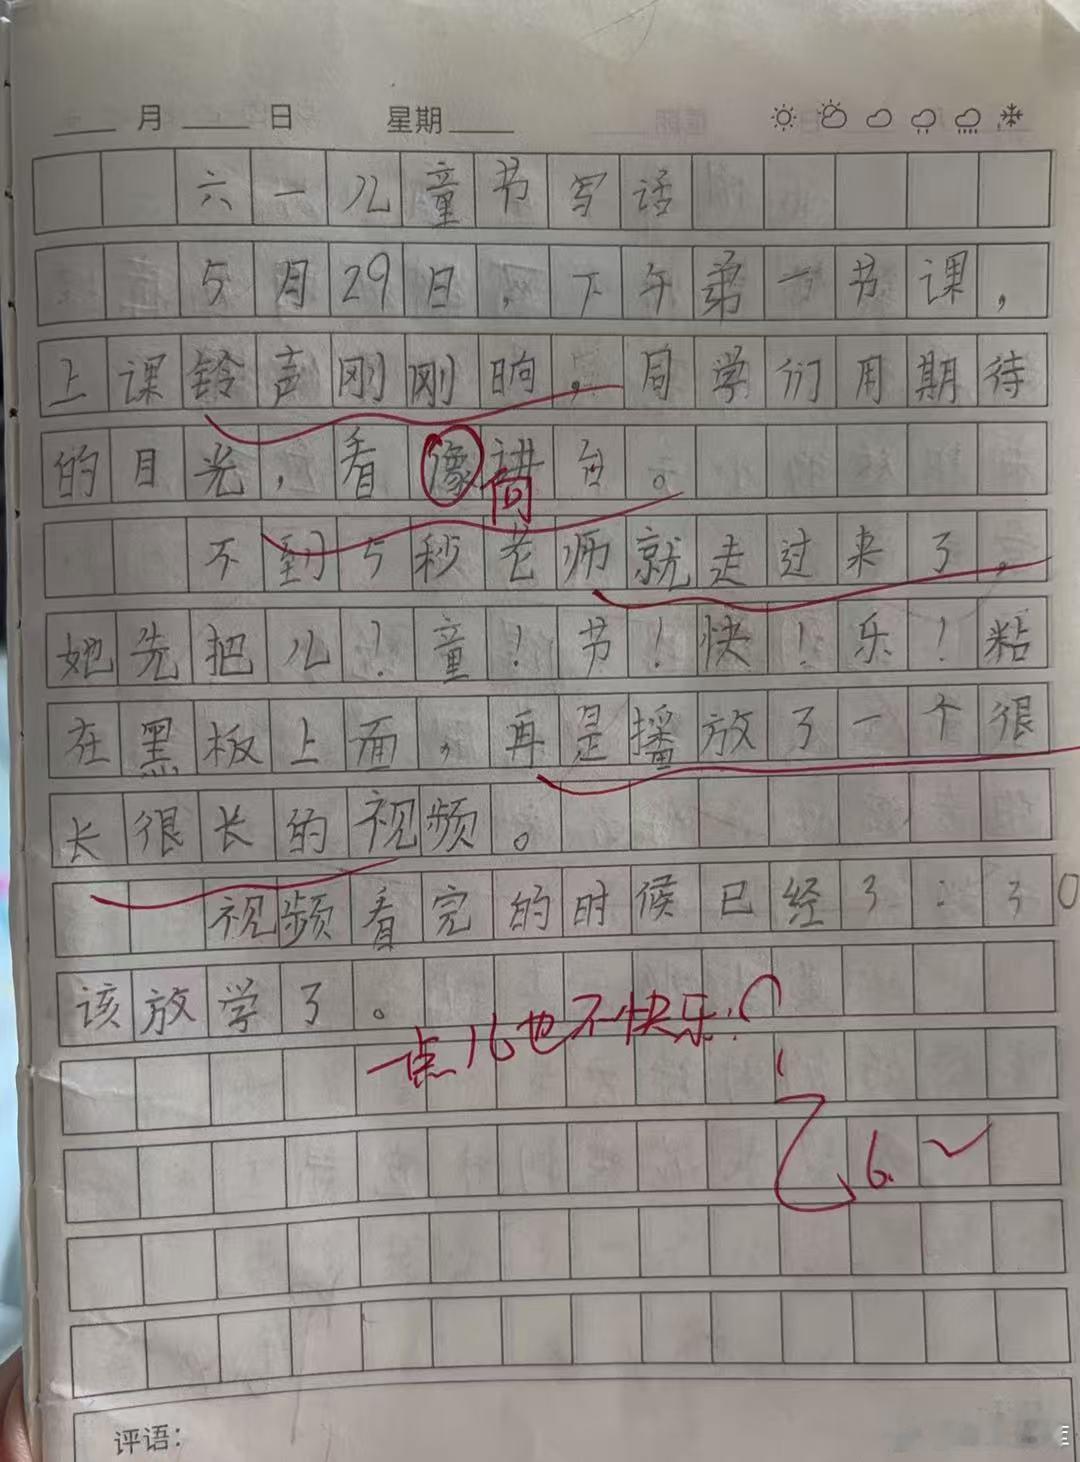 月 日 星期
六一儿童节写话
5月29日,下午第一节课,
上课铃声刚刚响。同学们用期待
的目光,看像讲台。
向
不到5秒老师就走过来了,
她先把儿!童!节!快!乐!粘
在黑板上面,再是播放了一个很
长很长的视频。
视频看完的时候已经3:30
该放学了。
一点儿也不快乐!
6.
评语: